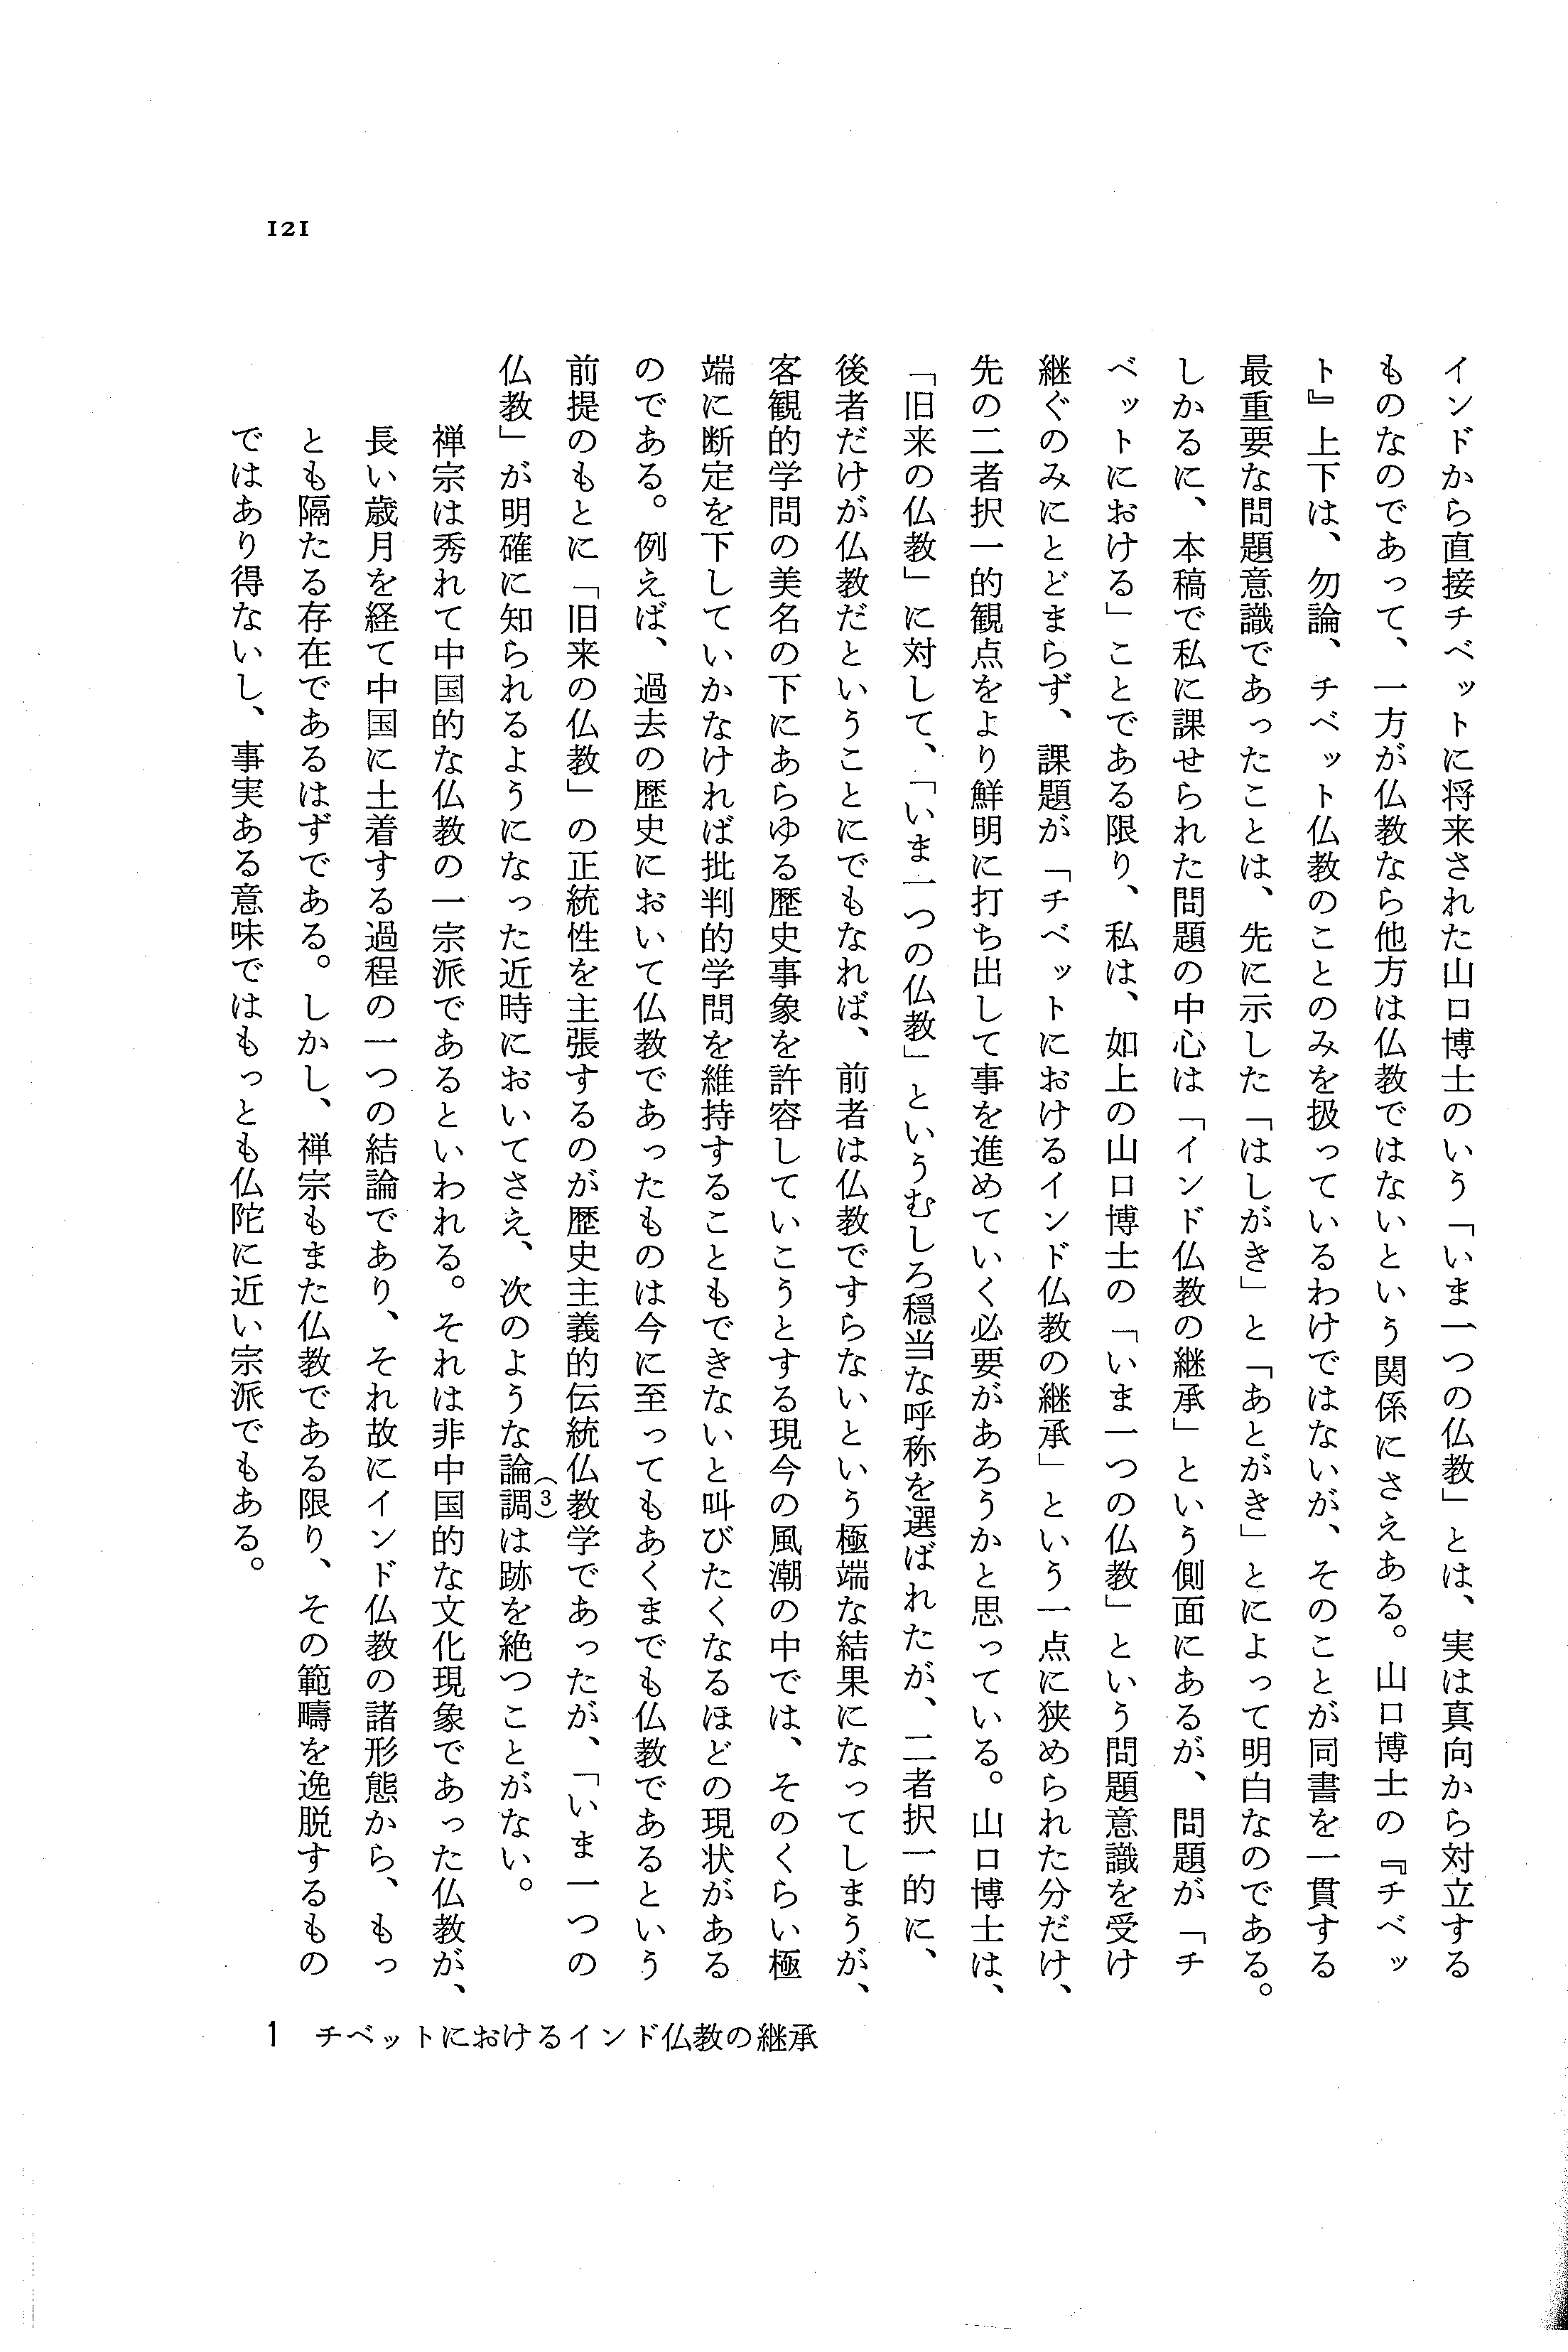 121
インドから直接チベットに将来された山口博士のいう「いま一つの仏教」とは、実は真向から対立する
ものなのであって、一方が仏教なら他方は仏教ではないという関係にさえある。山口博士の『チベッ
ト』上下は、勿論、チベット仏教のことのみを扱っているわけではないが、そのことが同書を一貫する
最重要な問題意識であったことは、先に示した「はしがき」と「あとがき」とによって明白なのである。
しかるに、本稿で私に課せられた問題の中心は「インド仏教の継承」という側面にあるが、問題が「チ
ベットにおける」ことである限り、私は、如上の山口博士の「いま一つの仏教」という問題意識を受け
継ぐのみにとどまらず、課題が「チベットにおけるインド仏教の継承」という一点に狭められた分だけ、
先の二者択一的観点をより鮮明に打ち出して事を進めていく必要があろうかと思っている。山口博士は、
「旧来の仏教」に対して、「いま一つの仏教」というむしろ穏当な呼称を選ばれたが、二者択一的に、
後者だけが仏教だということにでもなれば、前者は仏教ですらないという極端な結果になってしまうが、
客観的学問の美名の下にあらゆる歴史事象を許容していこうとする現今の風潮の中では、そのくらい極
端に断定を下していかなければ批判的学問を維持することもできないと叫びたくなるほどの現状がある
のである。例えば、過去の歴史において仏教であったものは今に至ってもあくまでも仏教であるという
前提のもとに「旧来の仏教」の正統性を主張するのが歴史主義的伝統仏教学であったが、「いま一つの
仏教」が明確に知られるようになった近時においてさえ、次のような論調(3)は跡を絶つことがない。
禅宗は秀れて中国的な仏教の一宗派であるといわれる。それは非中国的な文化現象であった仏教が、
長い歳月を経て中国に土着する過程の一つの結論であり、それ故にインド仏教の諸形態から、もっ
とも隔たる存在であるはずである。しかし、禅宗もまた仏教である限り、その範疇を逸脱するもの
ではあり得ないし、事実ある意味ではもっとも仏陀に近い宗派でもある。
1 チベットにおけるインド仏教の継承